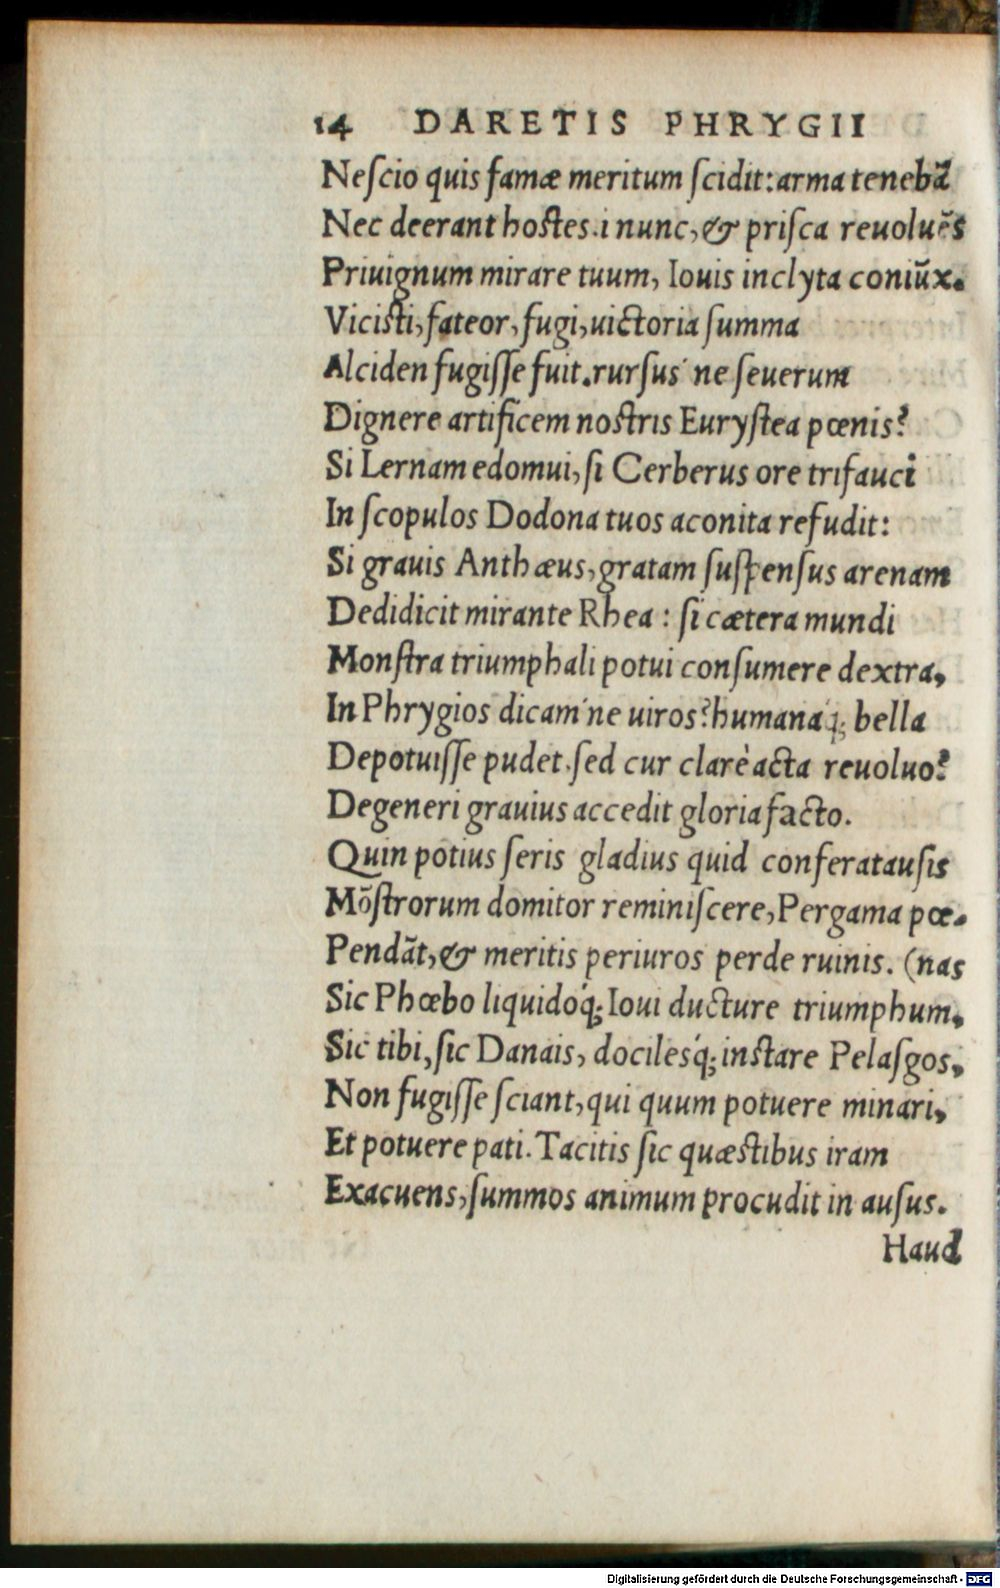 14 DARETIS PHRYGII
Neſcio quis famæ meritum ſcidit: arma tenebã
Nec deerant hostes. i nunc, & priſca reuoluẽs
Priuignum mirare tuum, Iouis inclyta coniũx.
Vicisti, fateor, fugi, uictoria ſumma
Alciden fugiſſe fuit. rurſus´ne ſeuerum
Dignere artificem nostris Euryſtea pœnis?
Si Lernam edomui, ſi Cerberus ore trifauci
In ſcopulos Dodona tuos aconita refudit:
Si grauis Anthæus, gratam ſuſpenſus arenam
Dedidicit mirante Rhea: ſi cætera mundi
Monſtra triumphali potui conſumere dextra,
In Phrygios dicam´ne uiros? humanáq; bella
Depotuiſſe pudet. ſed cur clarè acta reuoluo?
Degeneri grauius accedit gloria facto.
Quin potius ſeris gladius quid conferat auſis
Mõſtrorum domitor reminiſcere, Pergama pœ-
Pendãt, & meritis periuros perde ruinis. (nas
Sic Phœbo liquidóq; Ioui ducture triumphum,
Sic tibi, ſic Danais, dociléſq; instare Pelaſgos,
Non fugiſſe ſciant, qui quum potuere minari,
Et potuere pati. Tacitis ſic quæstibus iram
Exacuens, ſummos animum procudit in auſus.
Haud
Digitalisierung gefördert durch die Deutsche Forschungsgemeinschaft - DFG